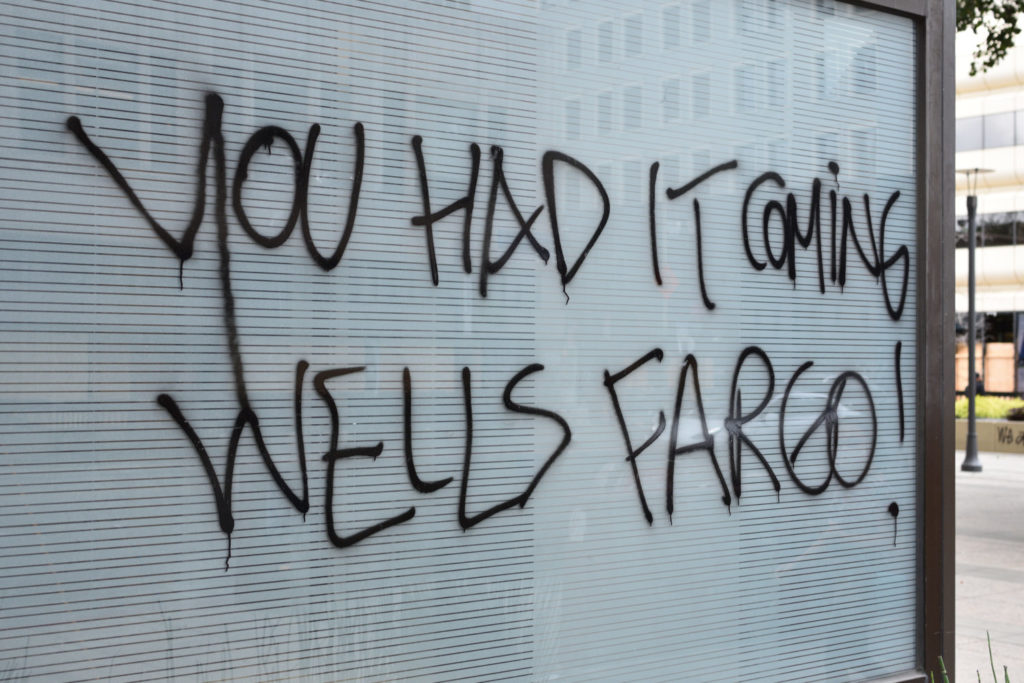 YOU HAD IT COMiNG
WELLS FARGO!